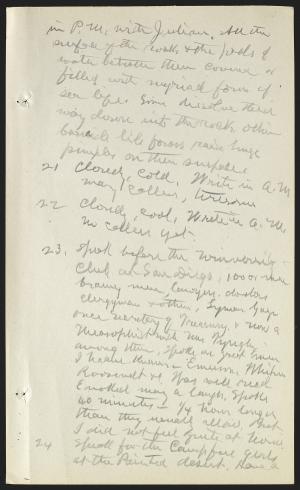 in P.M. with Julian. All the
surface of the rocks & the pools of
water between them covered or
filled with myriad forms of
sea life. Some dissolve their
way down into the rock, other
barnacle like forms raise huge
pimples on their surfaces
21 Cloudy, cold. Write in A.M.
many callers, tiresome
22 Cloudy, cool, Write in A.M.
No callers yet.
23. Speak before the University
Club at San Diego, 100 or more
brainy men, lawyers, doctors
clergymen & others, Lyman Gage
once secretary of Treasury & now a
Theosophist with Mrs Tingley
among them. Spoke on great men
I have known – Emerson, Whitman
Roosevelt & Was well rec'd
Evoked many a laugh. Spoke
40 minutes – 1/4 hour longer
than they usually allow. But
I did not feel quite at home.
24 Speak for the Campfire girls
at the Painted desert. Have a